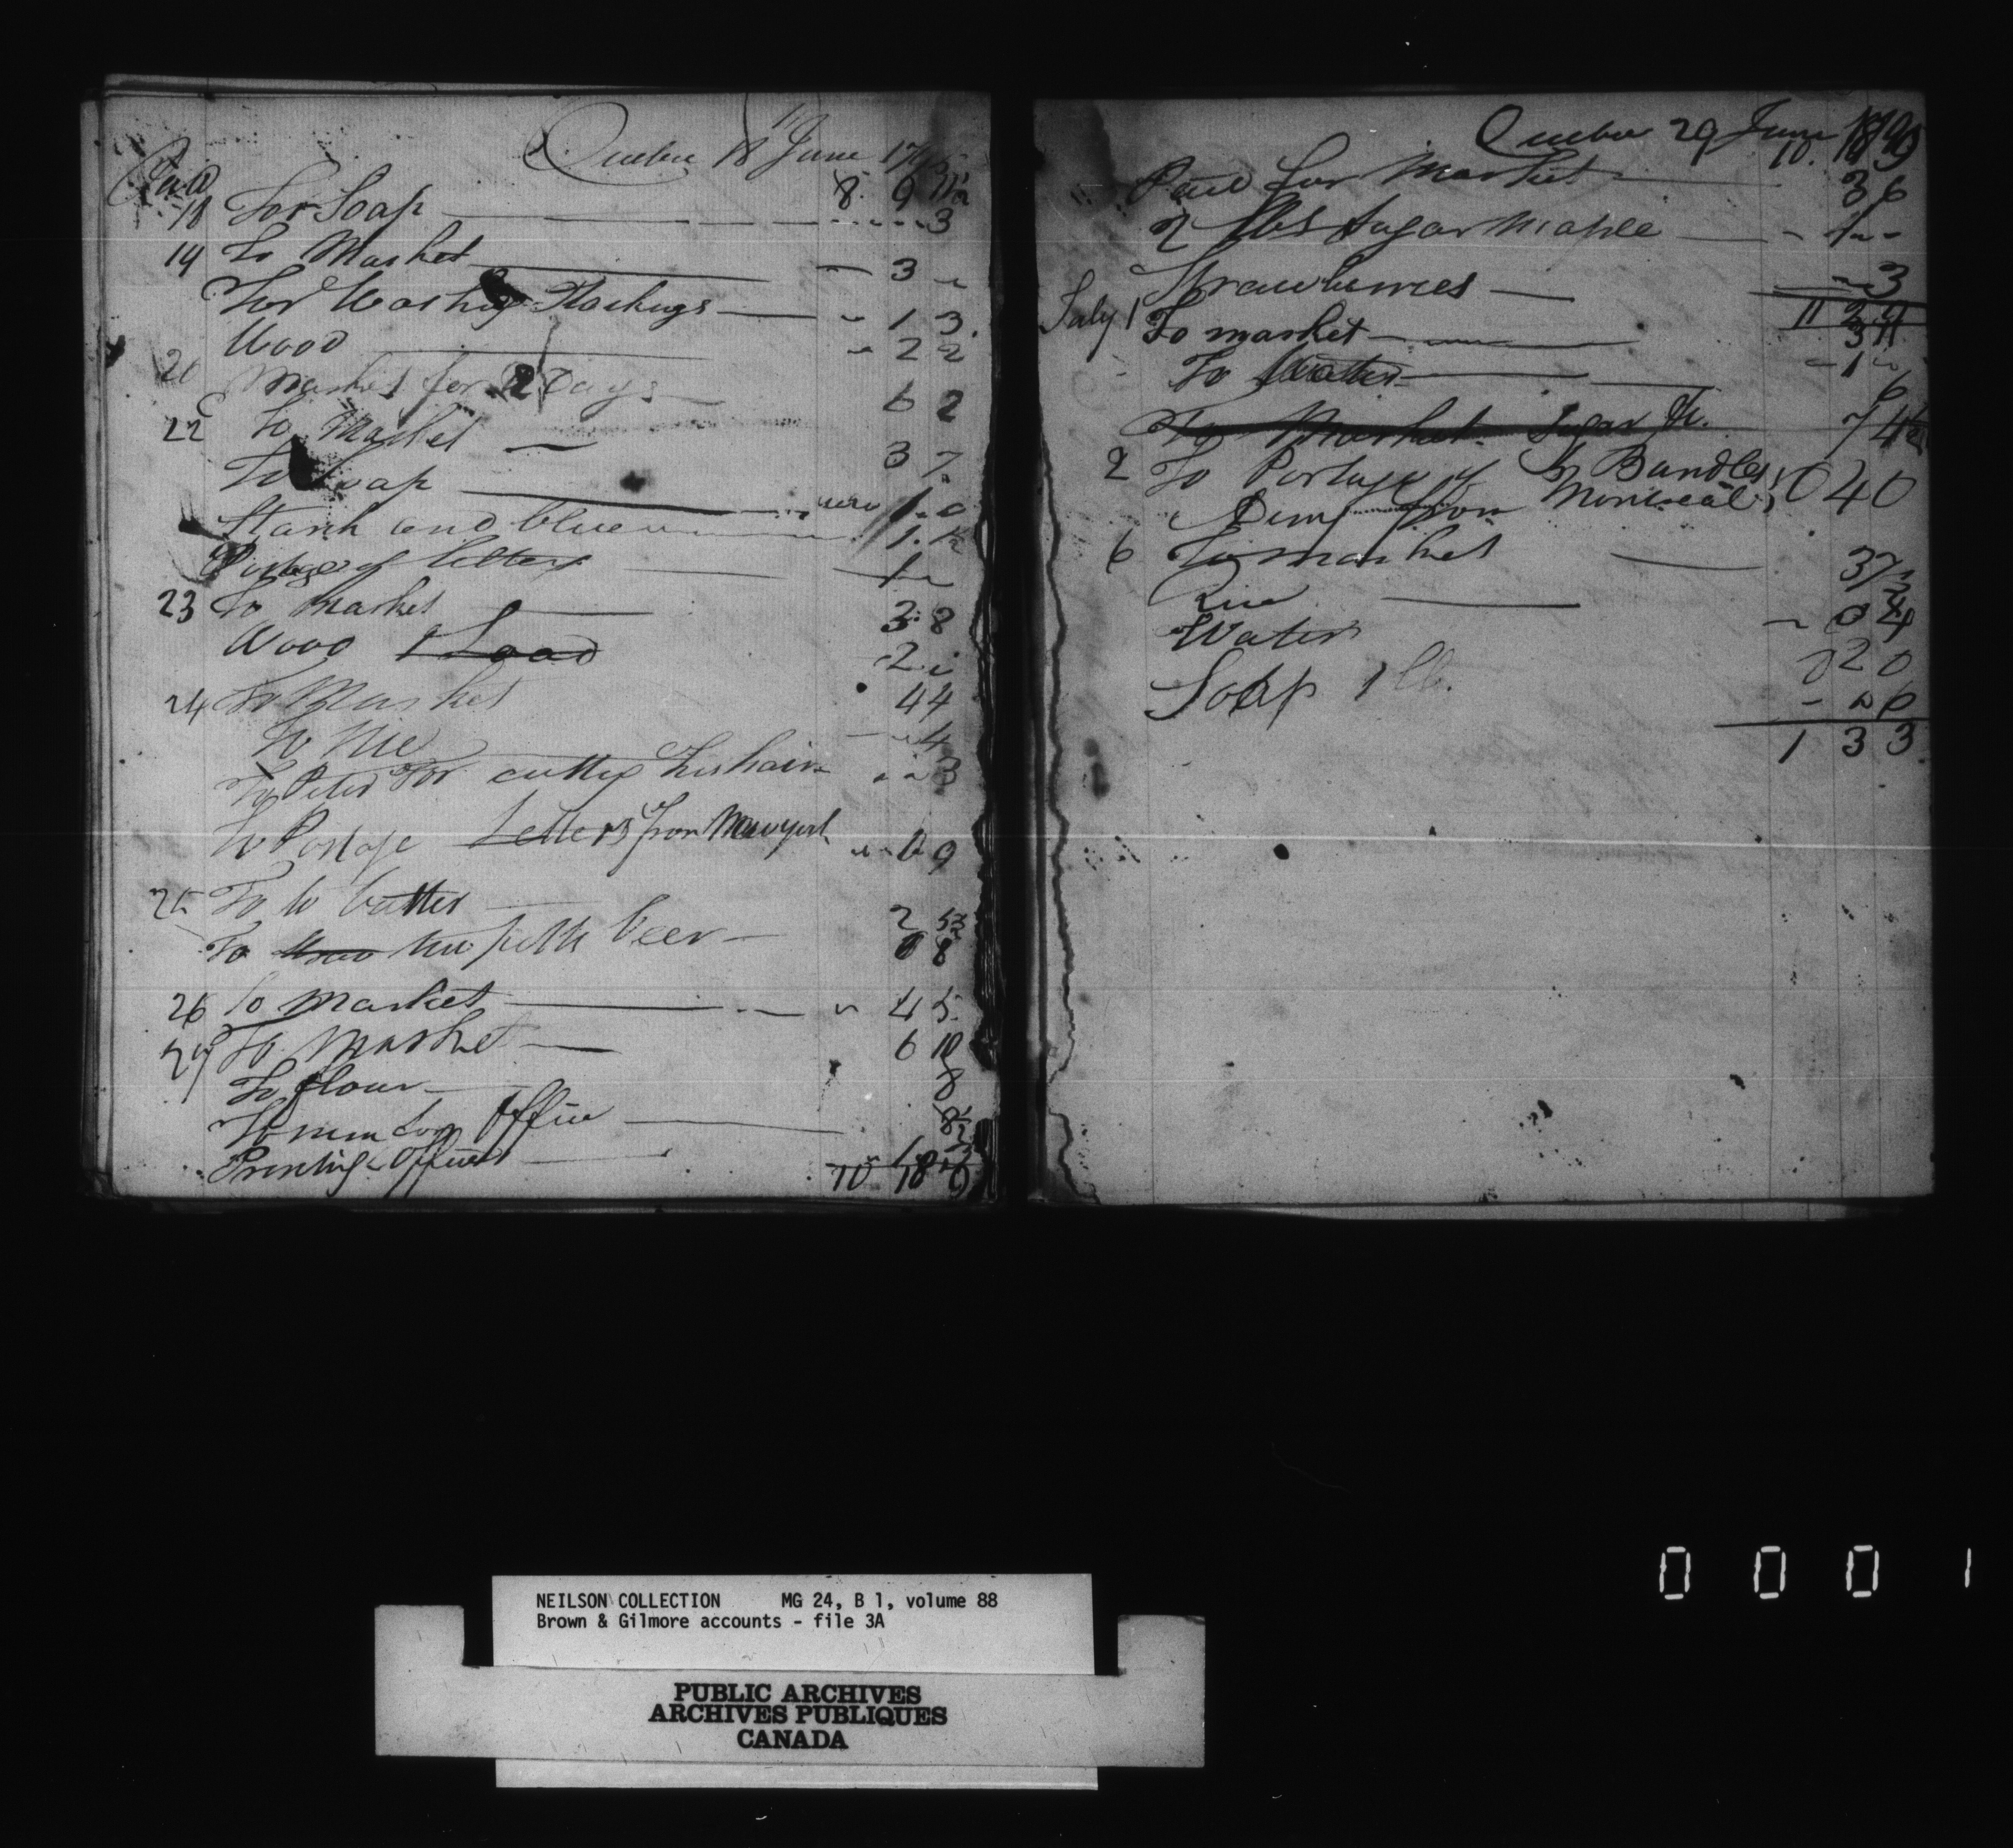 Quebec 18 June 1795
Paid 8 9 11½
18 For Soap 3
19 To Market 3 "
For Washing Stockings " 1 3
Wood " 2 2
20 Market for 2 Days 6 2
22 To Market 3 7
To Soap 1. 0
Starch and blue 1. 1½
Postage of letters 1 "
23 To Market 3. 8
Wood 1 Load 2
24 To Market 4 4
To 4
To Peter for cutting his hair 3
To Postage Letters from Newyork 9
25 To butter 2
To beer 0 8
26 To Market " 4 5
29 To Market 6 10
To flour 8
To rum for Office 8½
Printing Office
10 18 9
Quebec 29 June
10. 18 9
Paid for Market 3 6
2 lbs Sugar Maple - 1 " -
Strawberries - " 3
11 3
July 1 To market 3 11
To Water - 1 "
6
To Market Sugar &c. 7 4½
2 To Portage of Bundles 0 4 0
from Montreal
6 To market 3 7½
Rice 0 4
Water 0 2 0
Soap 1 lb. - " 6
1 3 3
0001
NEILSON COLLECTION MG 24, B 1, volume 88
Brown & Gilmore accounts - file 3A
PUBLIC ARCHIVES
ARCHIVES PUBLIQUES
CANADA